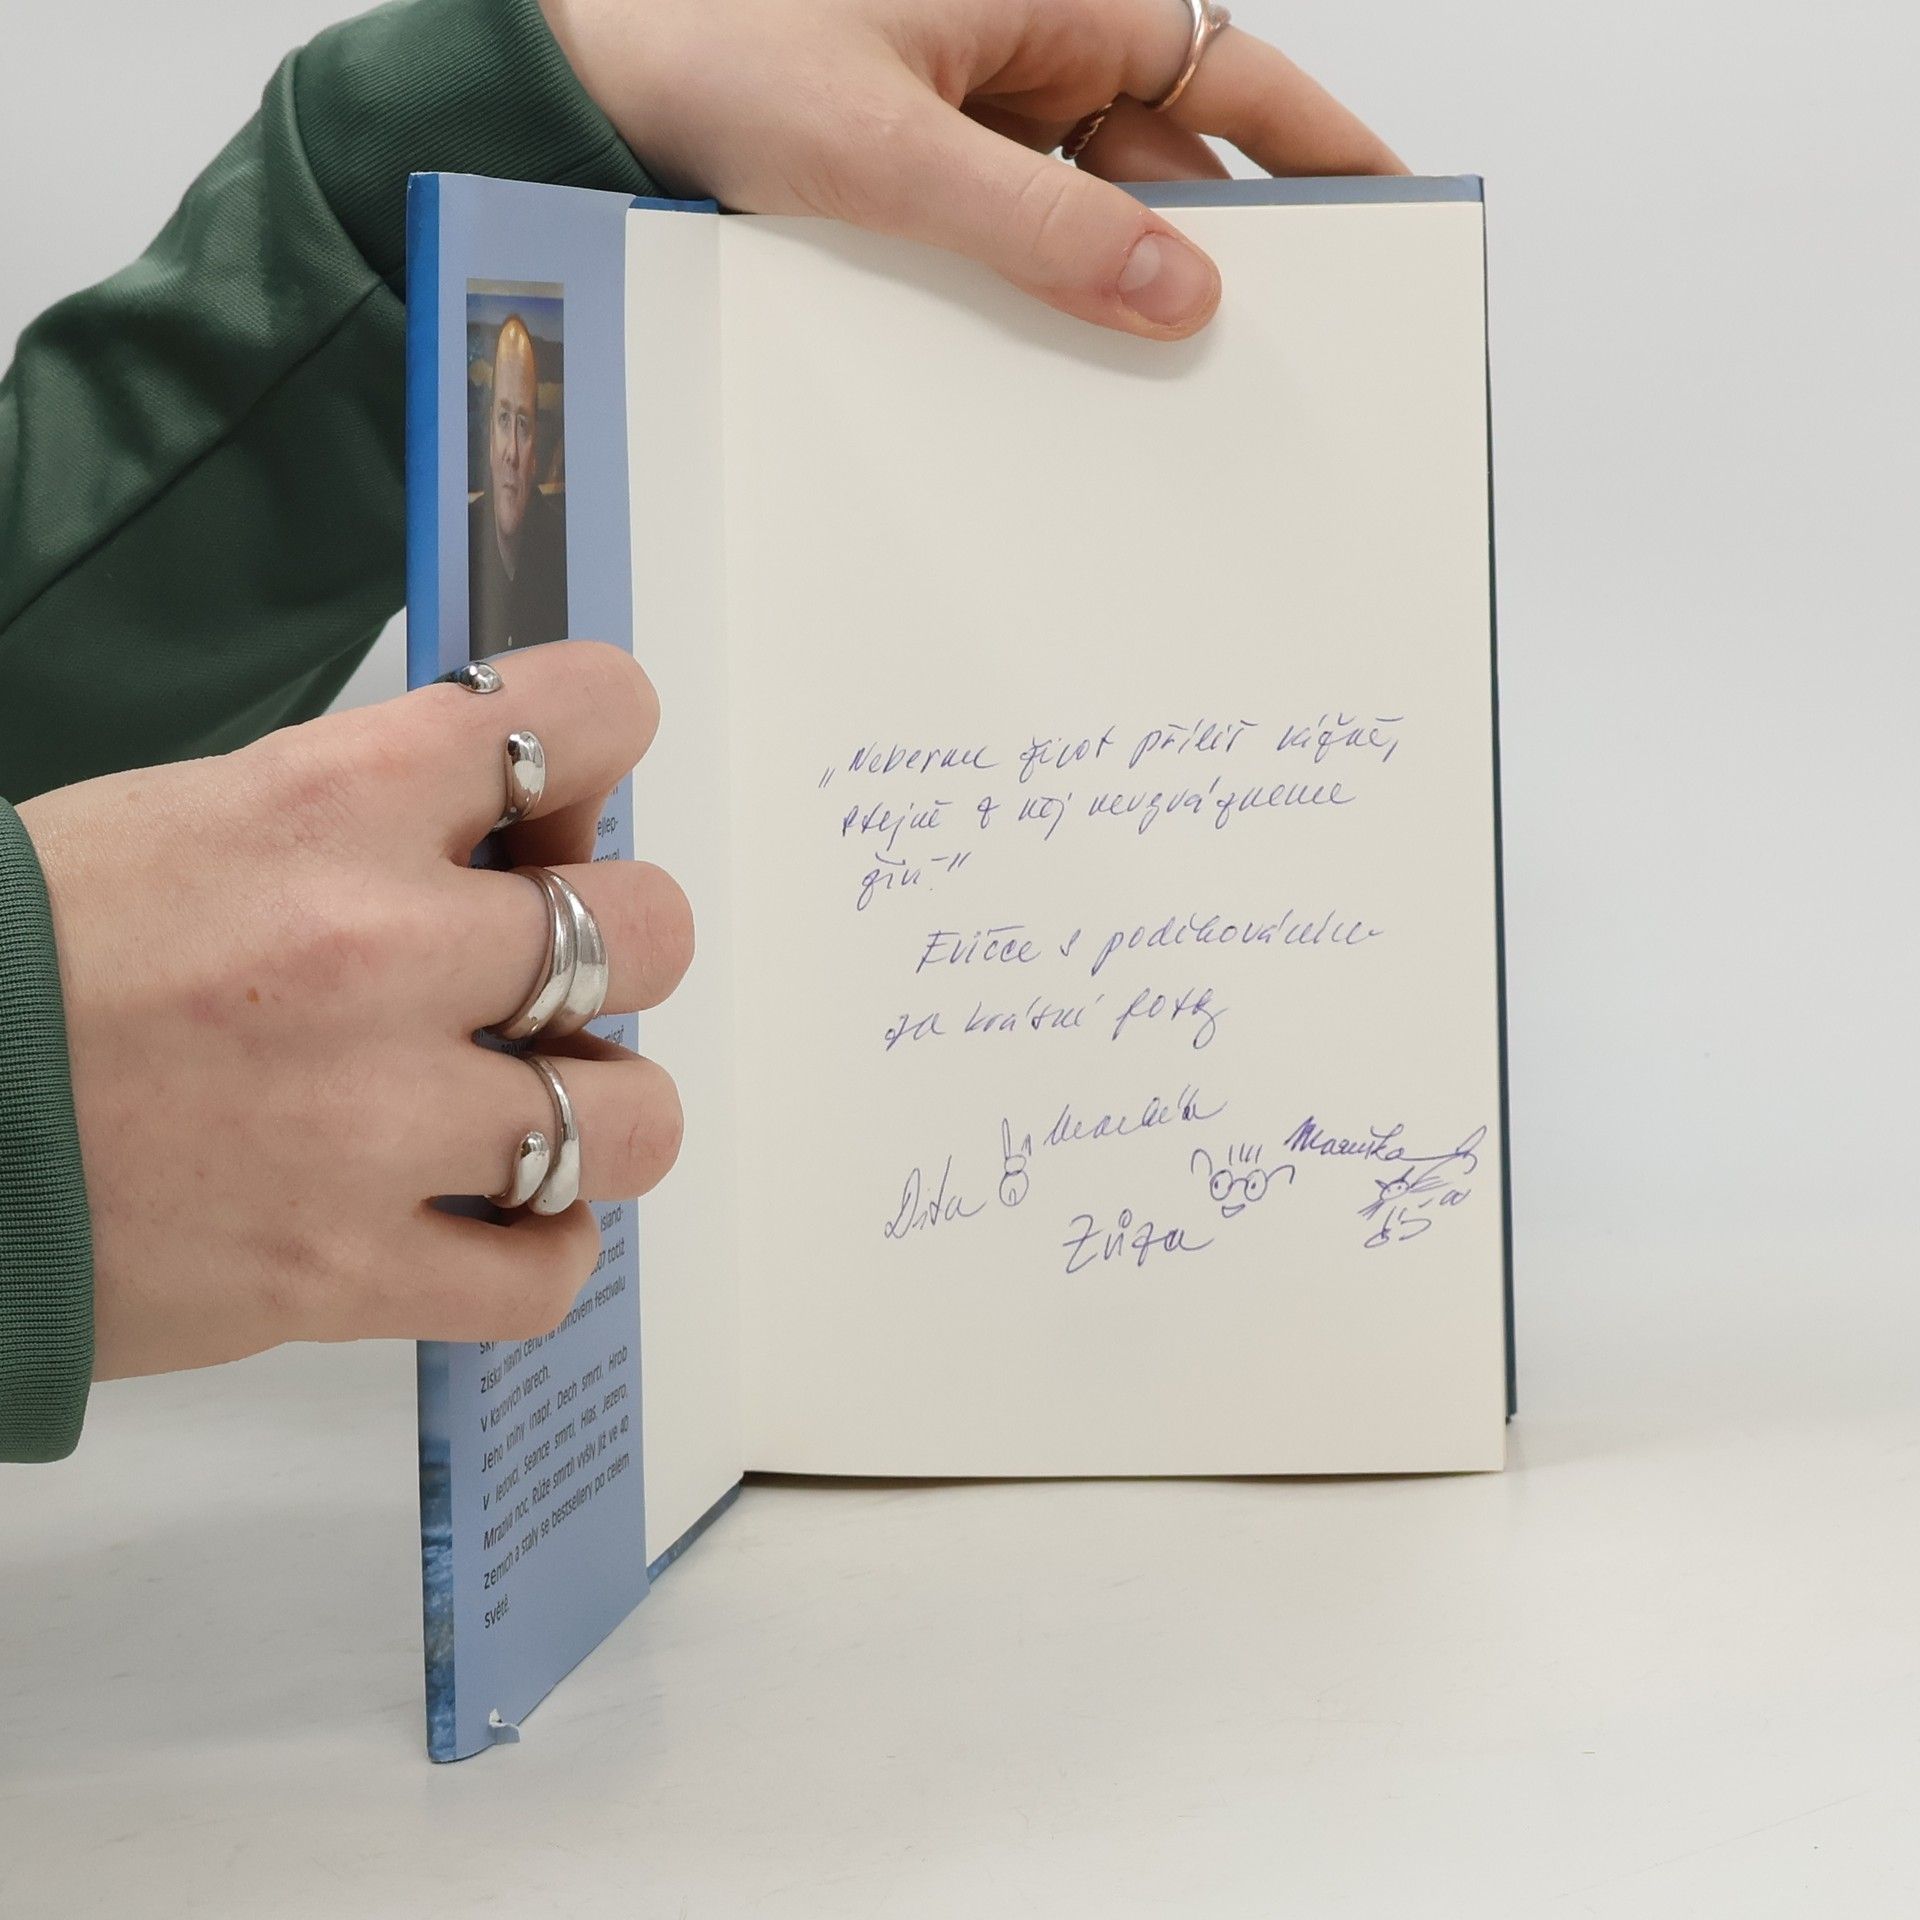 ejlep-
island-
2007 totiž
získal hlavní cenu na filmovém festivalu
v Karlových Varech.
Jeho knihy (např. Dech smrti, Hrob
v ledovci, Séance smrti, Hlas, Jezero,
Mrazivá noc, Růže smrti) vyšly již ve 40
zemích a staly se bestsellery po celém
světě.
„Neberme život příliš vážně,
stejně z něj nevyvázneme
živí."
Evičce s poděkováním
za krásné fotky
Markéta
Maruška
Dita
Zůza